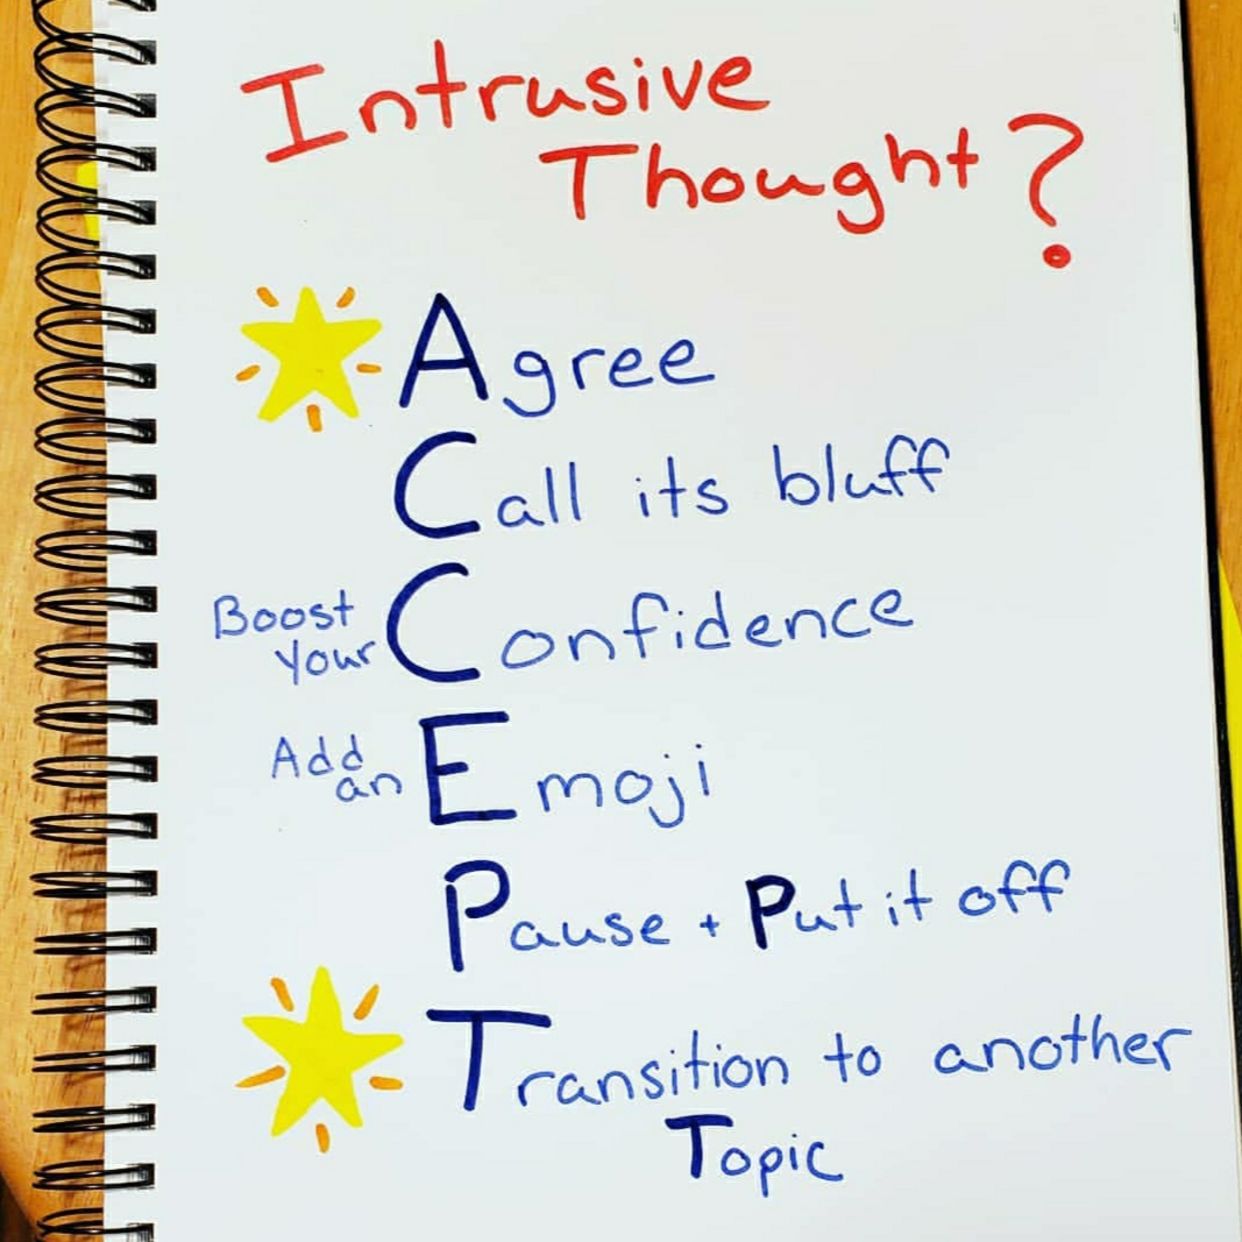 Intrusive
Thought?
Agree
Call its bluff
Boost
Your Confidence
Add
an Emoji
Pause + Put it off
Transition to another
Topic